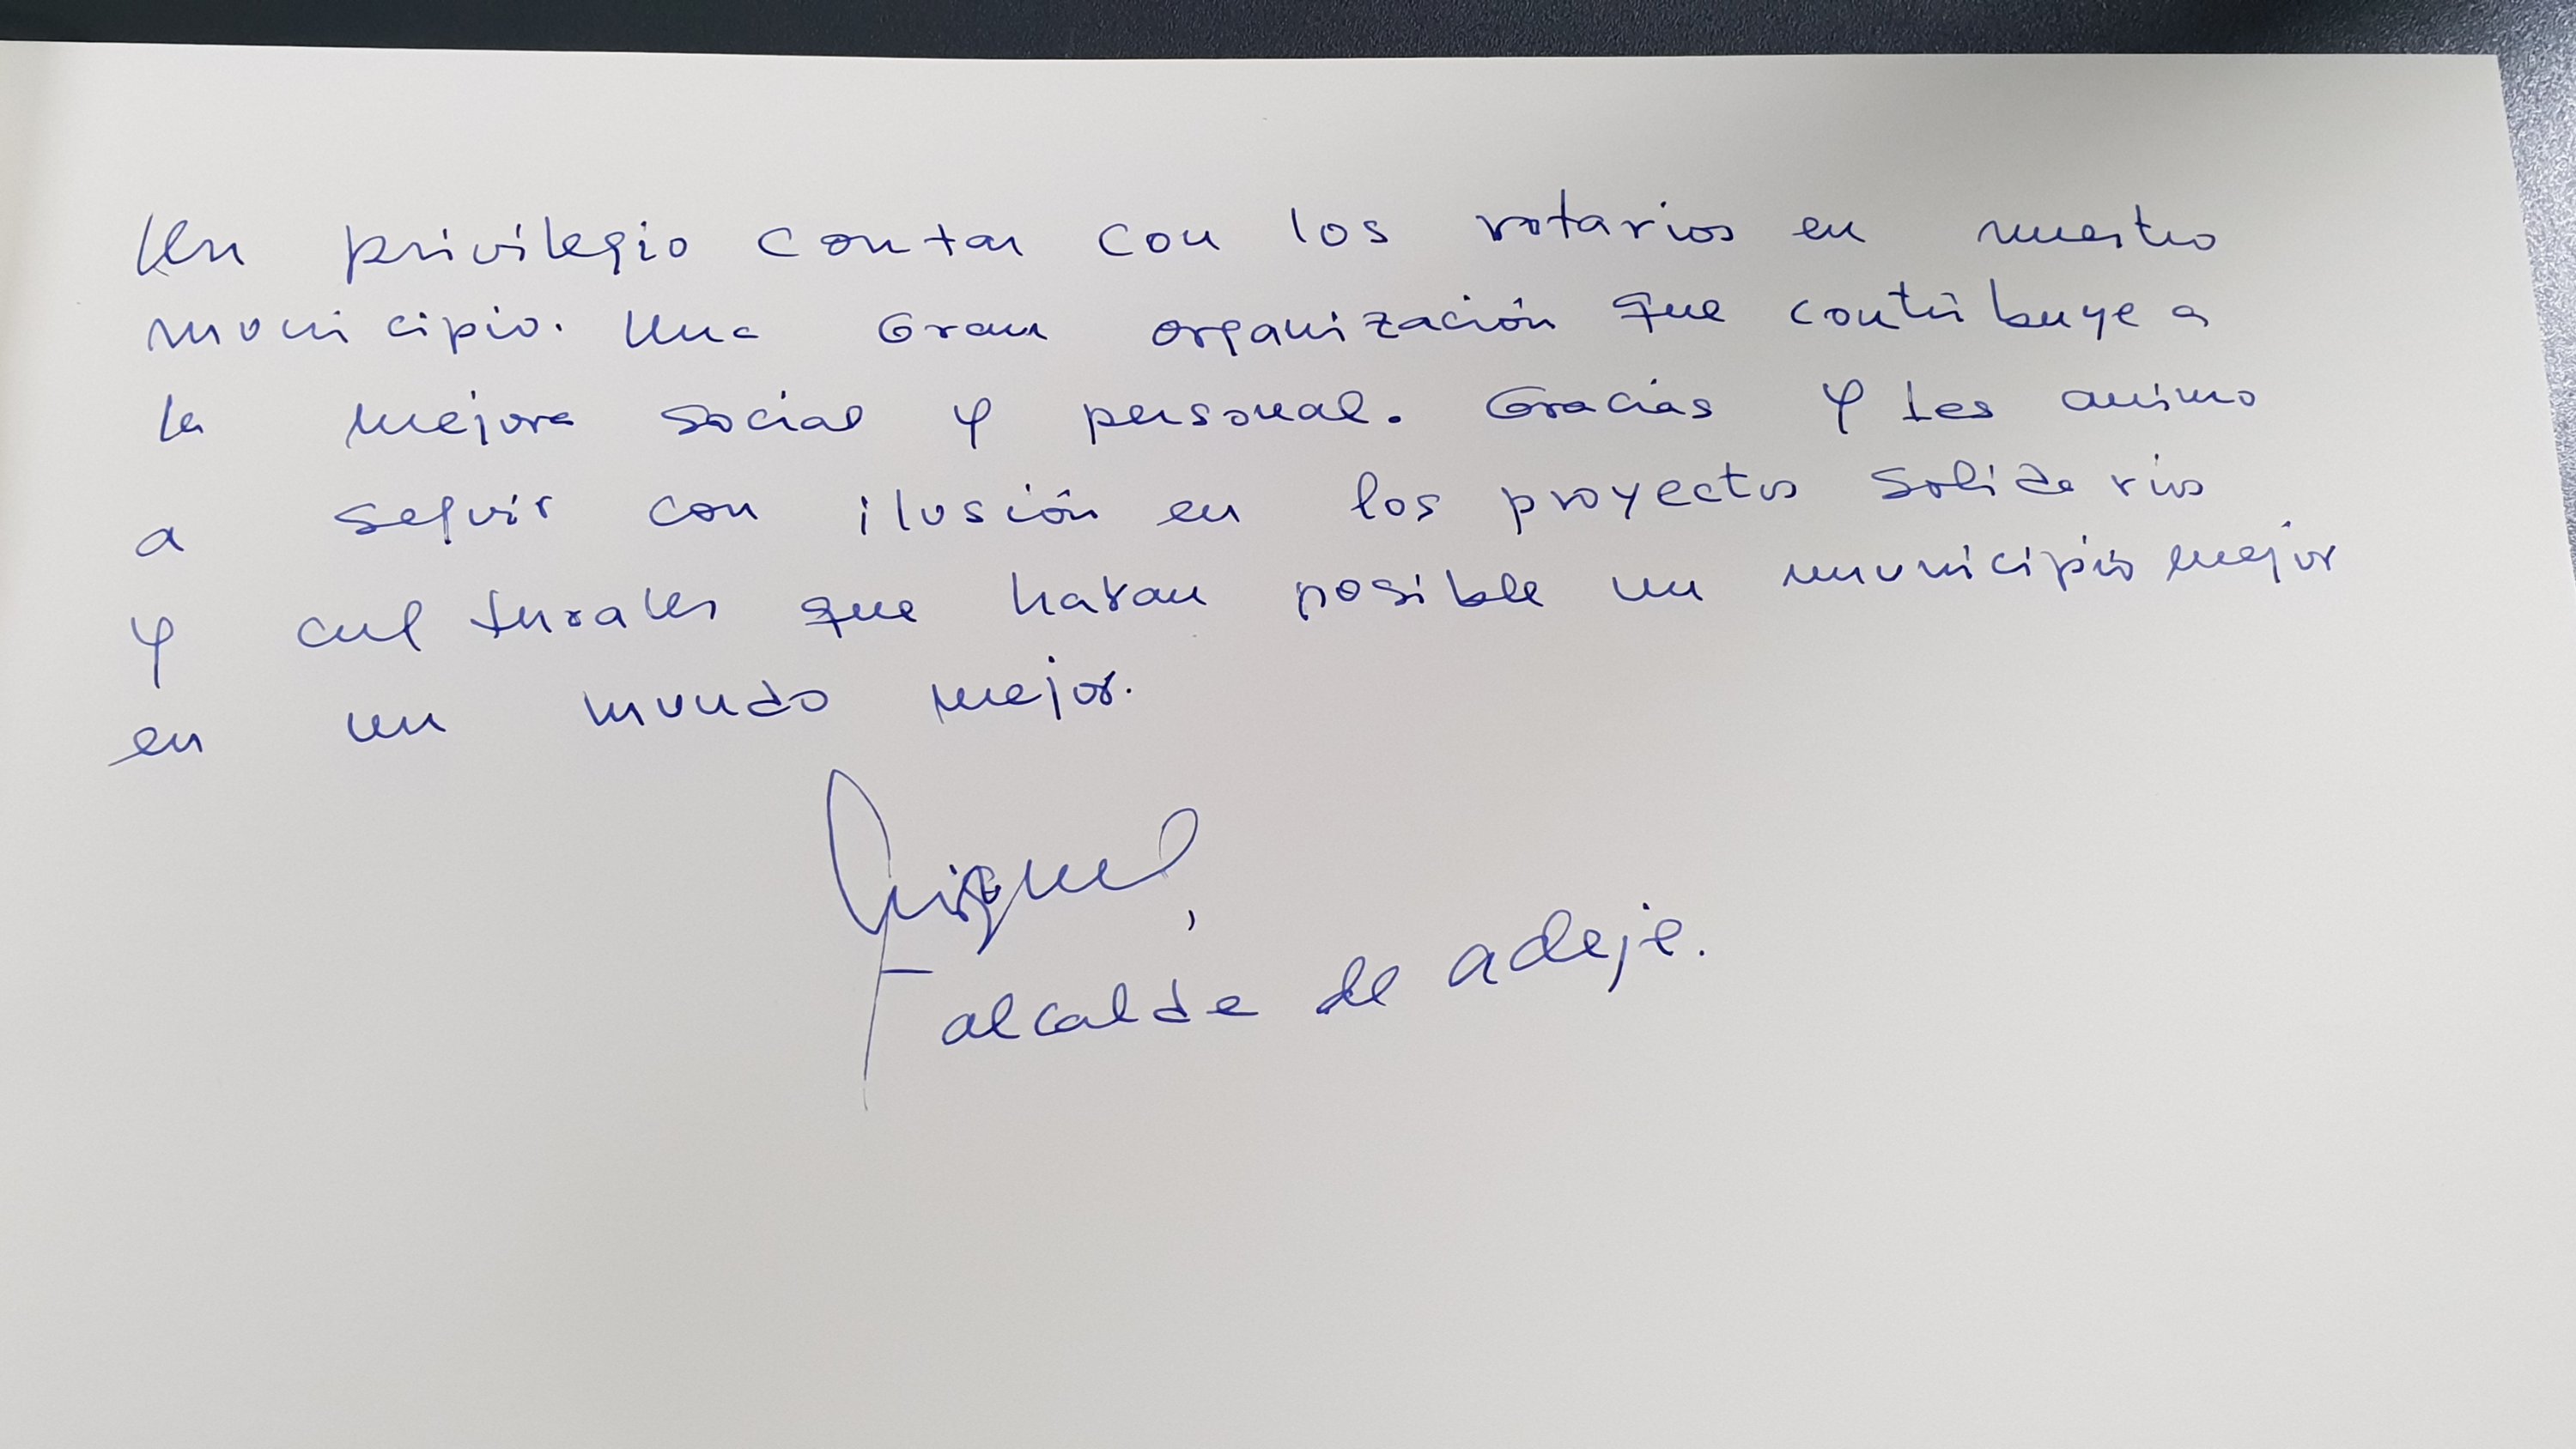 Un privilegio contar con los rotarios en nuestro
municipio. Una Gran organización que contribuye a
la mejora social y personal. Gracias y les animo
a seguir con ilusión en los proyectos solidarios
y culturales que haran posible un municipio mejor
en un mundo mejor.
Miguel,
alcalde de adeje.